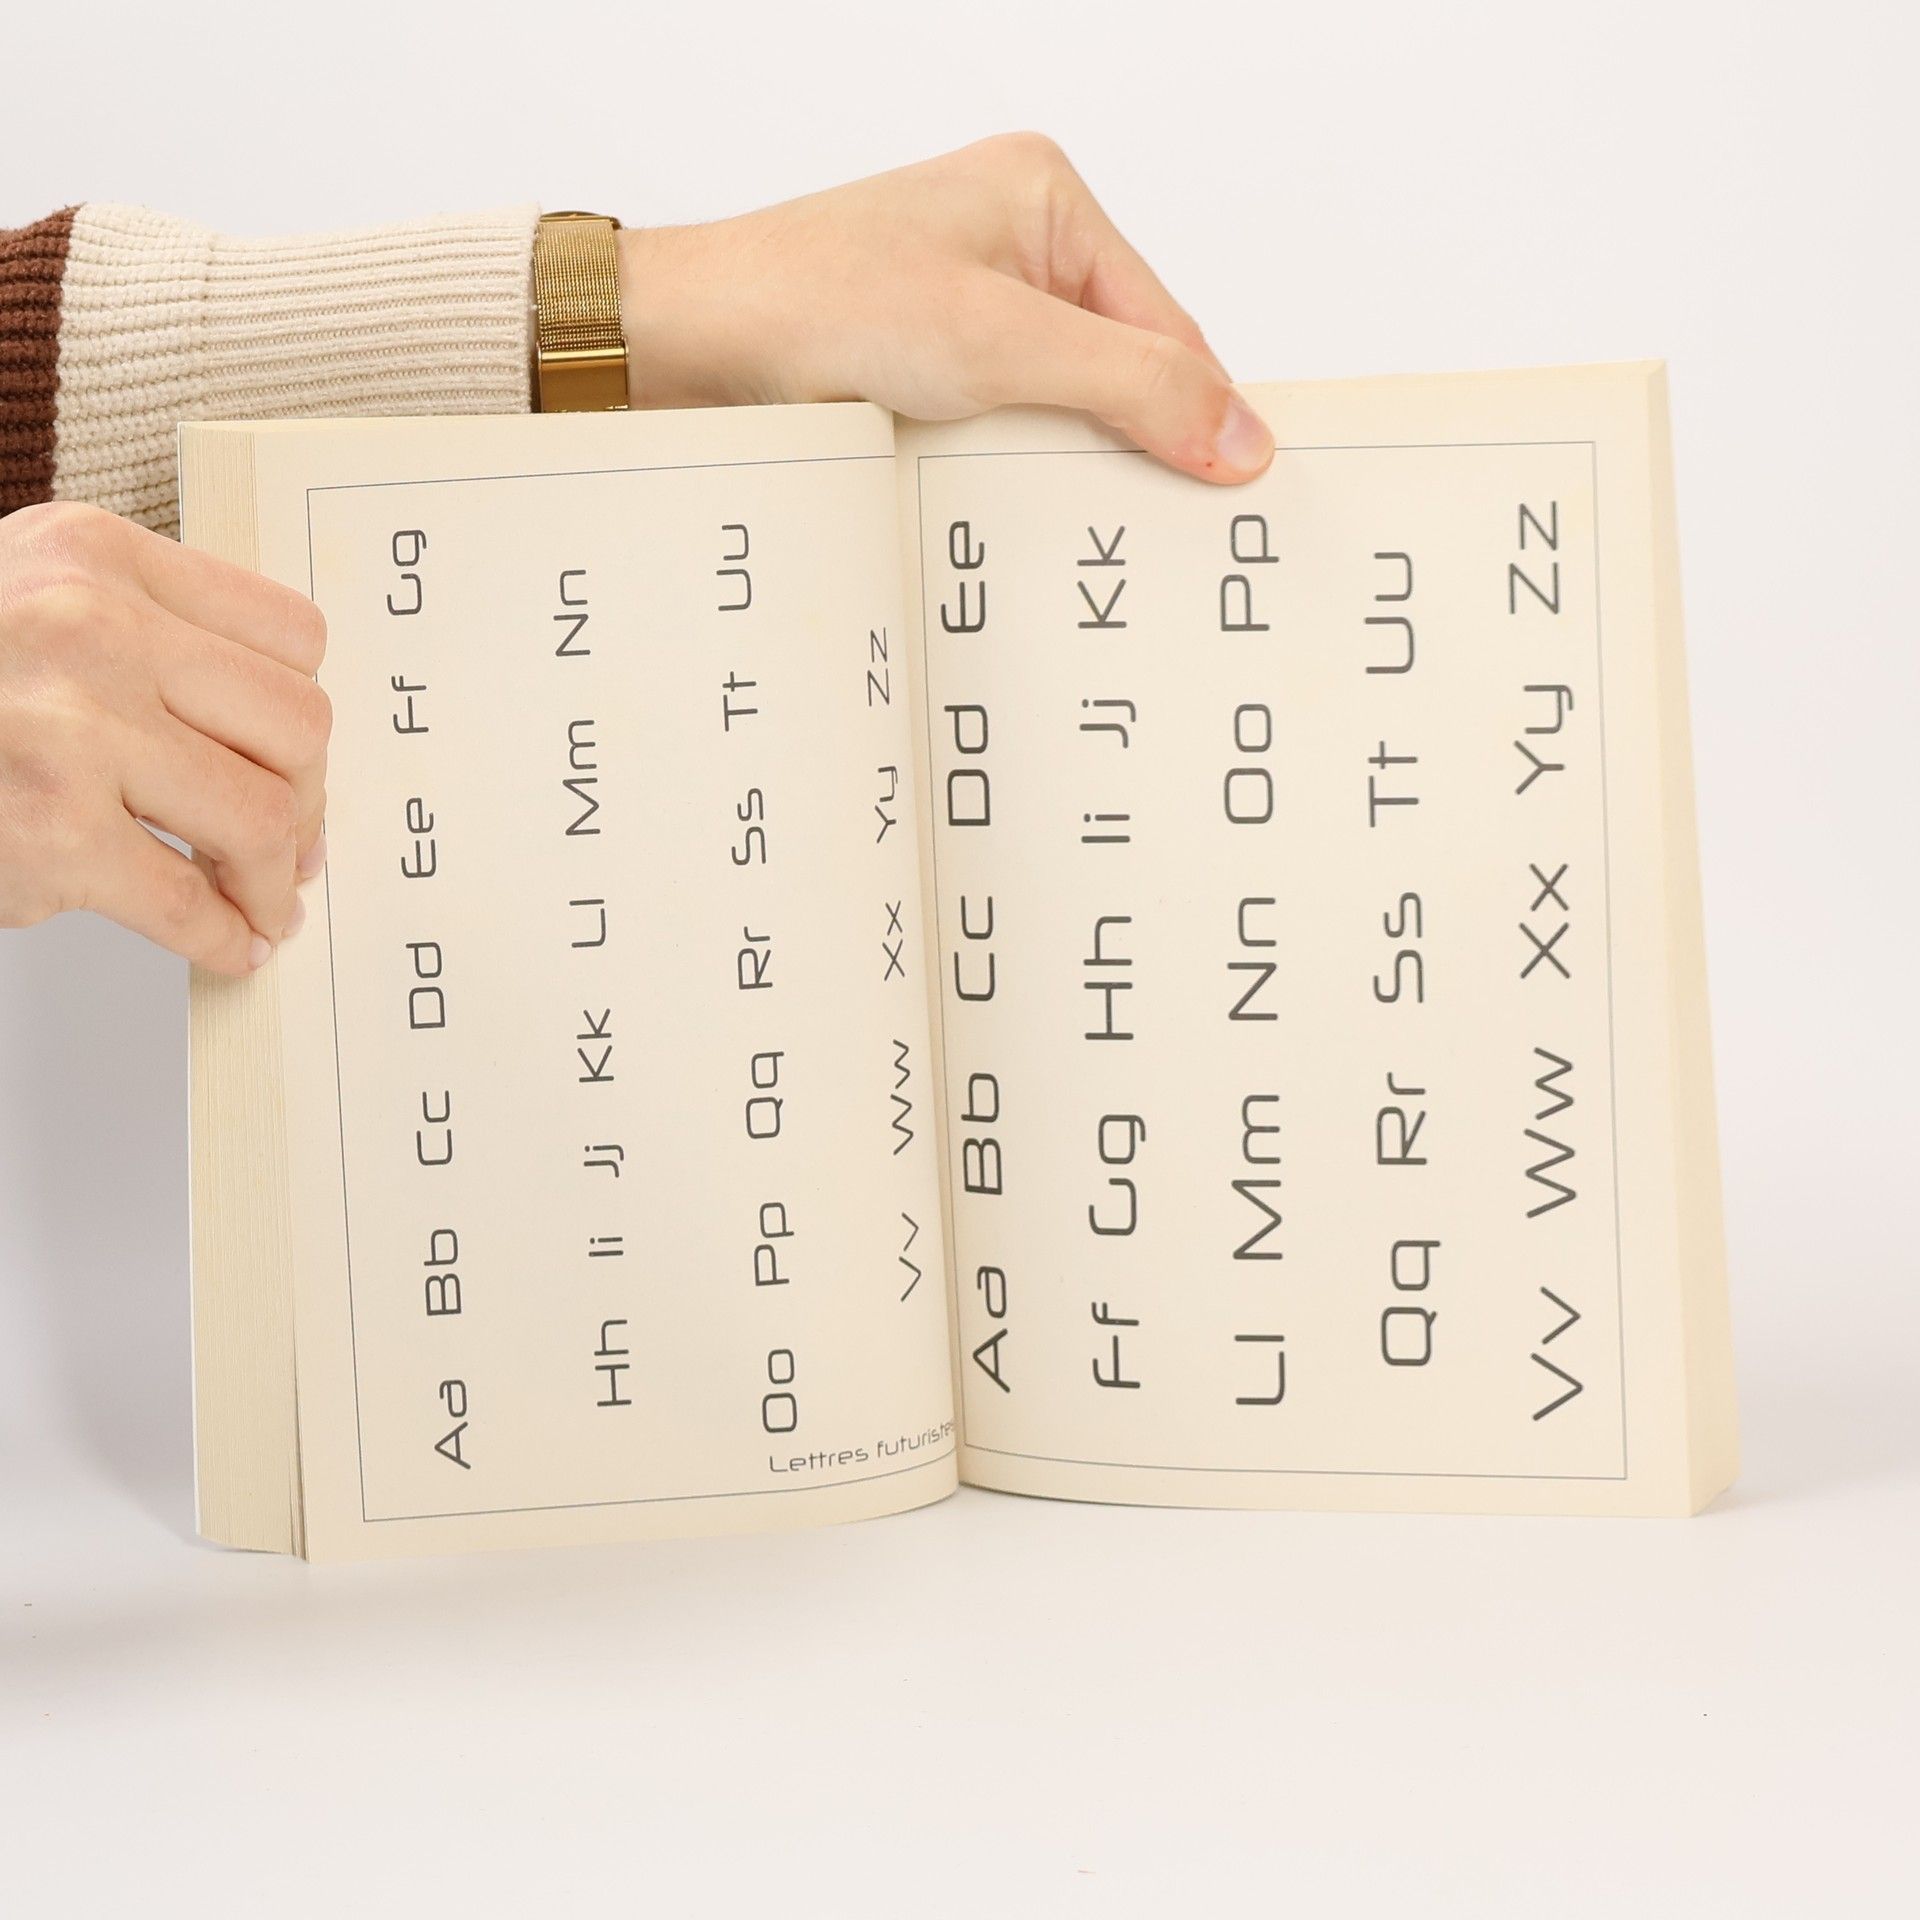 Aa Bb Cc Dd Ee Ff Gg
Hh Ii Jj Kk Ll Mm Nn
Oo Pp Qq Rr Ss Tt Uu
Vv Ww Xx Yy Zz
Lettres futuristes
Aa Bb Cc Dd Ee
Ff Gg Hh Ii Jj Kk
Ll Mm Nn Oo Pp
Qq Rr Ss Tt Uu
Vv Ww Xx Yy Zz